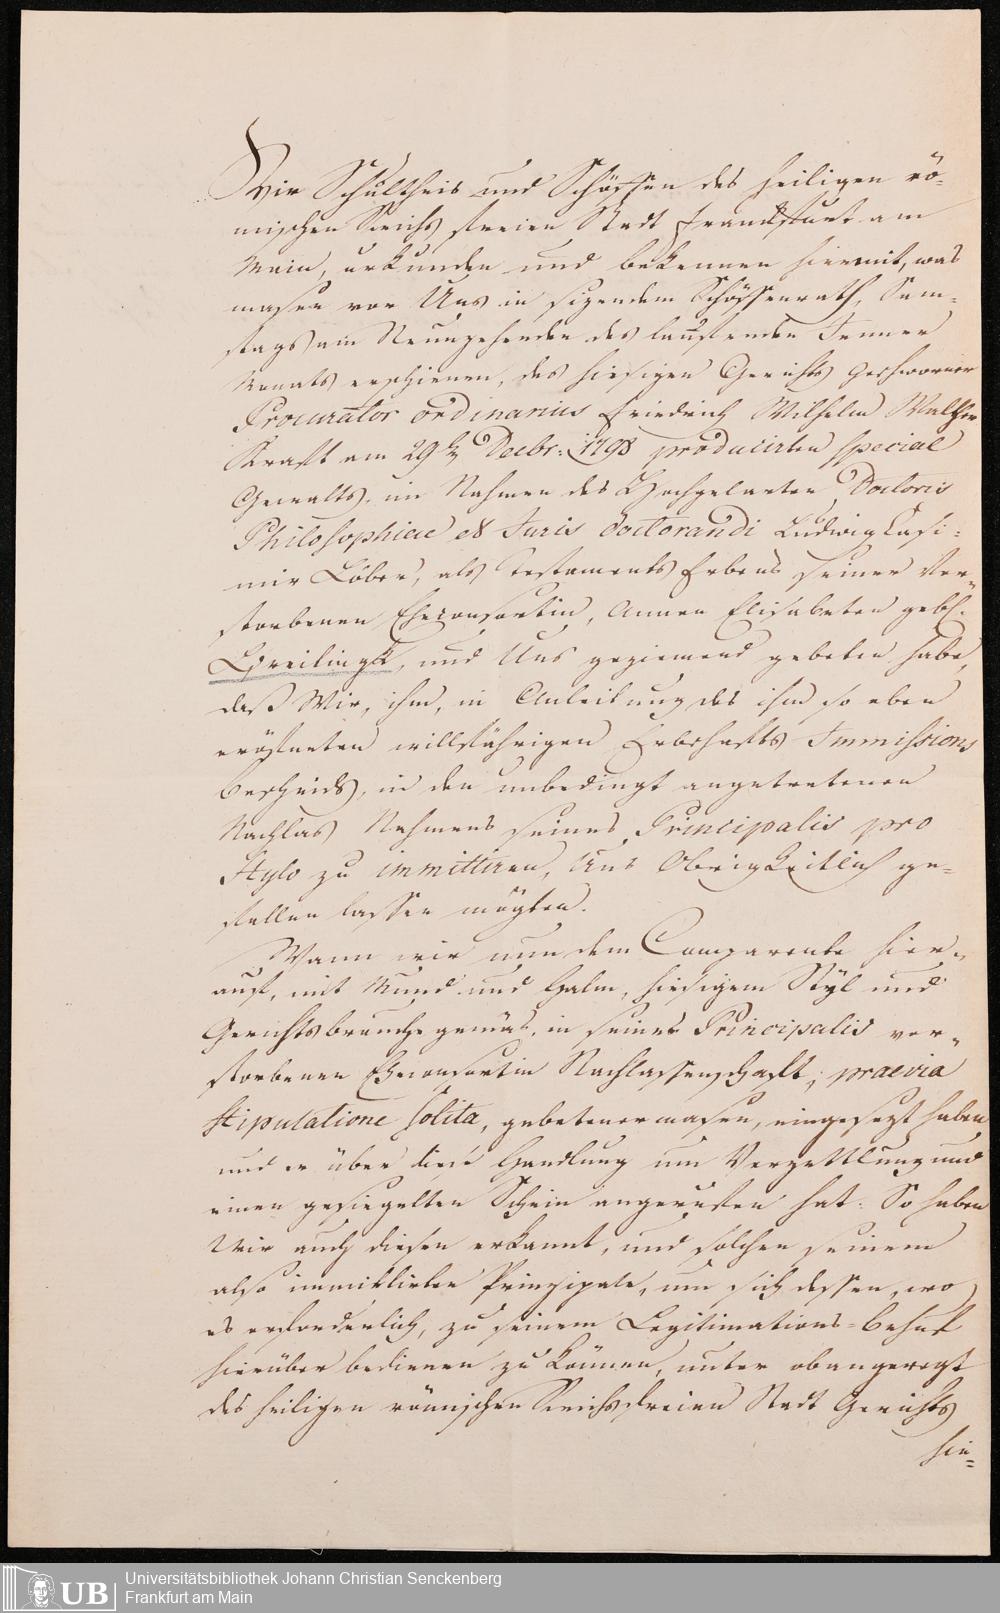 Wir Schultheis und Schöffen des heiligen rö-
mischen Reichs freien Stadt Franckfurt am
Main, urkunden und bekennen hiermit, was
masen vor Uns in sizendem Schöffenrath, Sam-
stags am Neunzehenden des laufenden Jenner
Monats erschienen, des hiesigen Gerichts geschworner
Procurator ordinarius Friedrich Wilhelm Walther
Krafft am 29ten Decbr: 1798 producirten special
Gewalts, im Nahmen des Hochgelarten Doctoris
Philosophiae et Juris doctorandi Ludwig Casi-
mir Löber, als Testaments Erbens seiner Ver-
storbenen Eheconsortin, Annen Elisabeten geb.
Spreilingk, und Uns geziemend gebeten habe,
daß Wir, ihm, in Anleitung des ihm so eben
eröfneten willfährigen Erbschafts Immissions
bescheids, in den unbedingt angetretenen
Nachlas Nahmens seines Principalis pro
stylo zu immittiren, Uns Obrigkeitlich ge-
fallen lassen mögten.
Wann wir nun dem Comparente hier-
auf, mit Mund und Halm, hiesigem Styl und
Gerichtsbrauche gemäs, in seines Principalis ver-
storbenen Eheconsortin Nachlassenschaft, praevia
stipulatione solita, gebetenermasen, eingesezt haben
und er über diese Handlung um Verzettlung und
einen gesiegelten Schein angerufen hat: So haben
Wir auch diesen erkannt, und solchen seinem
also immittirten Prinzipale, um sich dessen, wo
es erforderlich, zu seinem Legitimations-Behuf
hierüber bedienen zu können, unter obangeregt
des heiligen römischen Reichs freien Stadt Gerichts
hie-
UB
Universitätsbibliothek Johann Christian Senckenberg
Frankfurt am Main